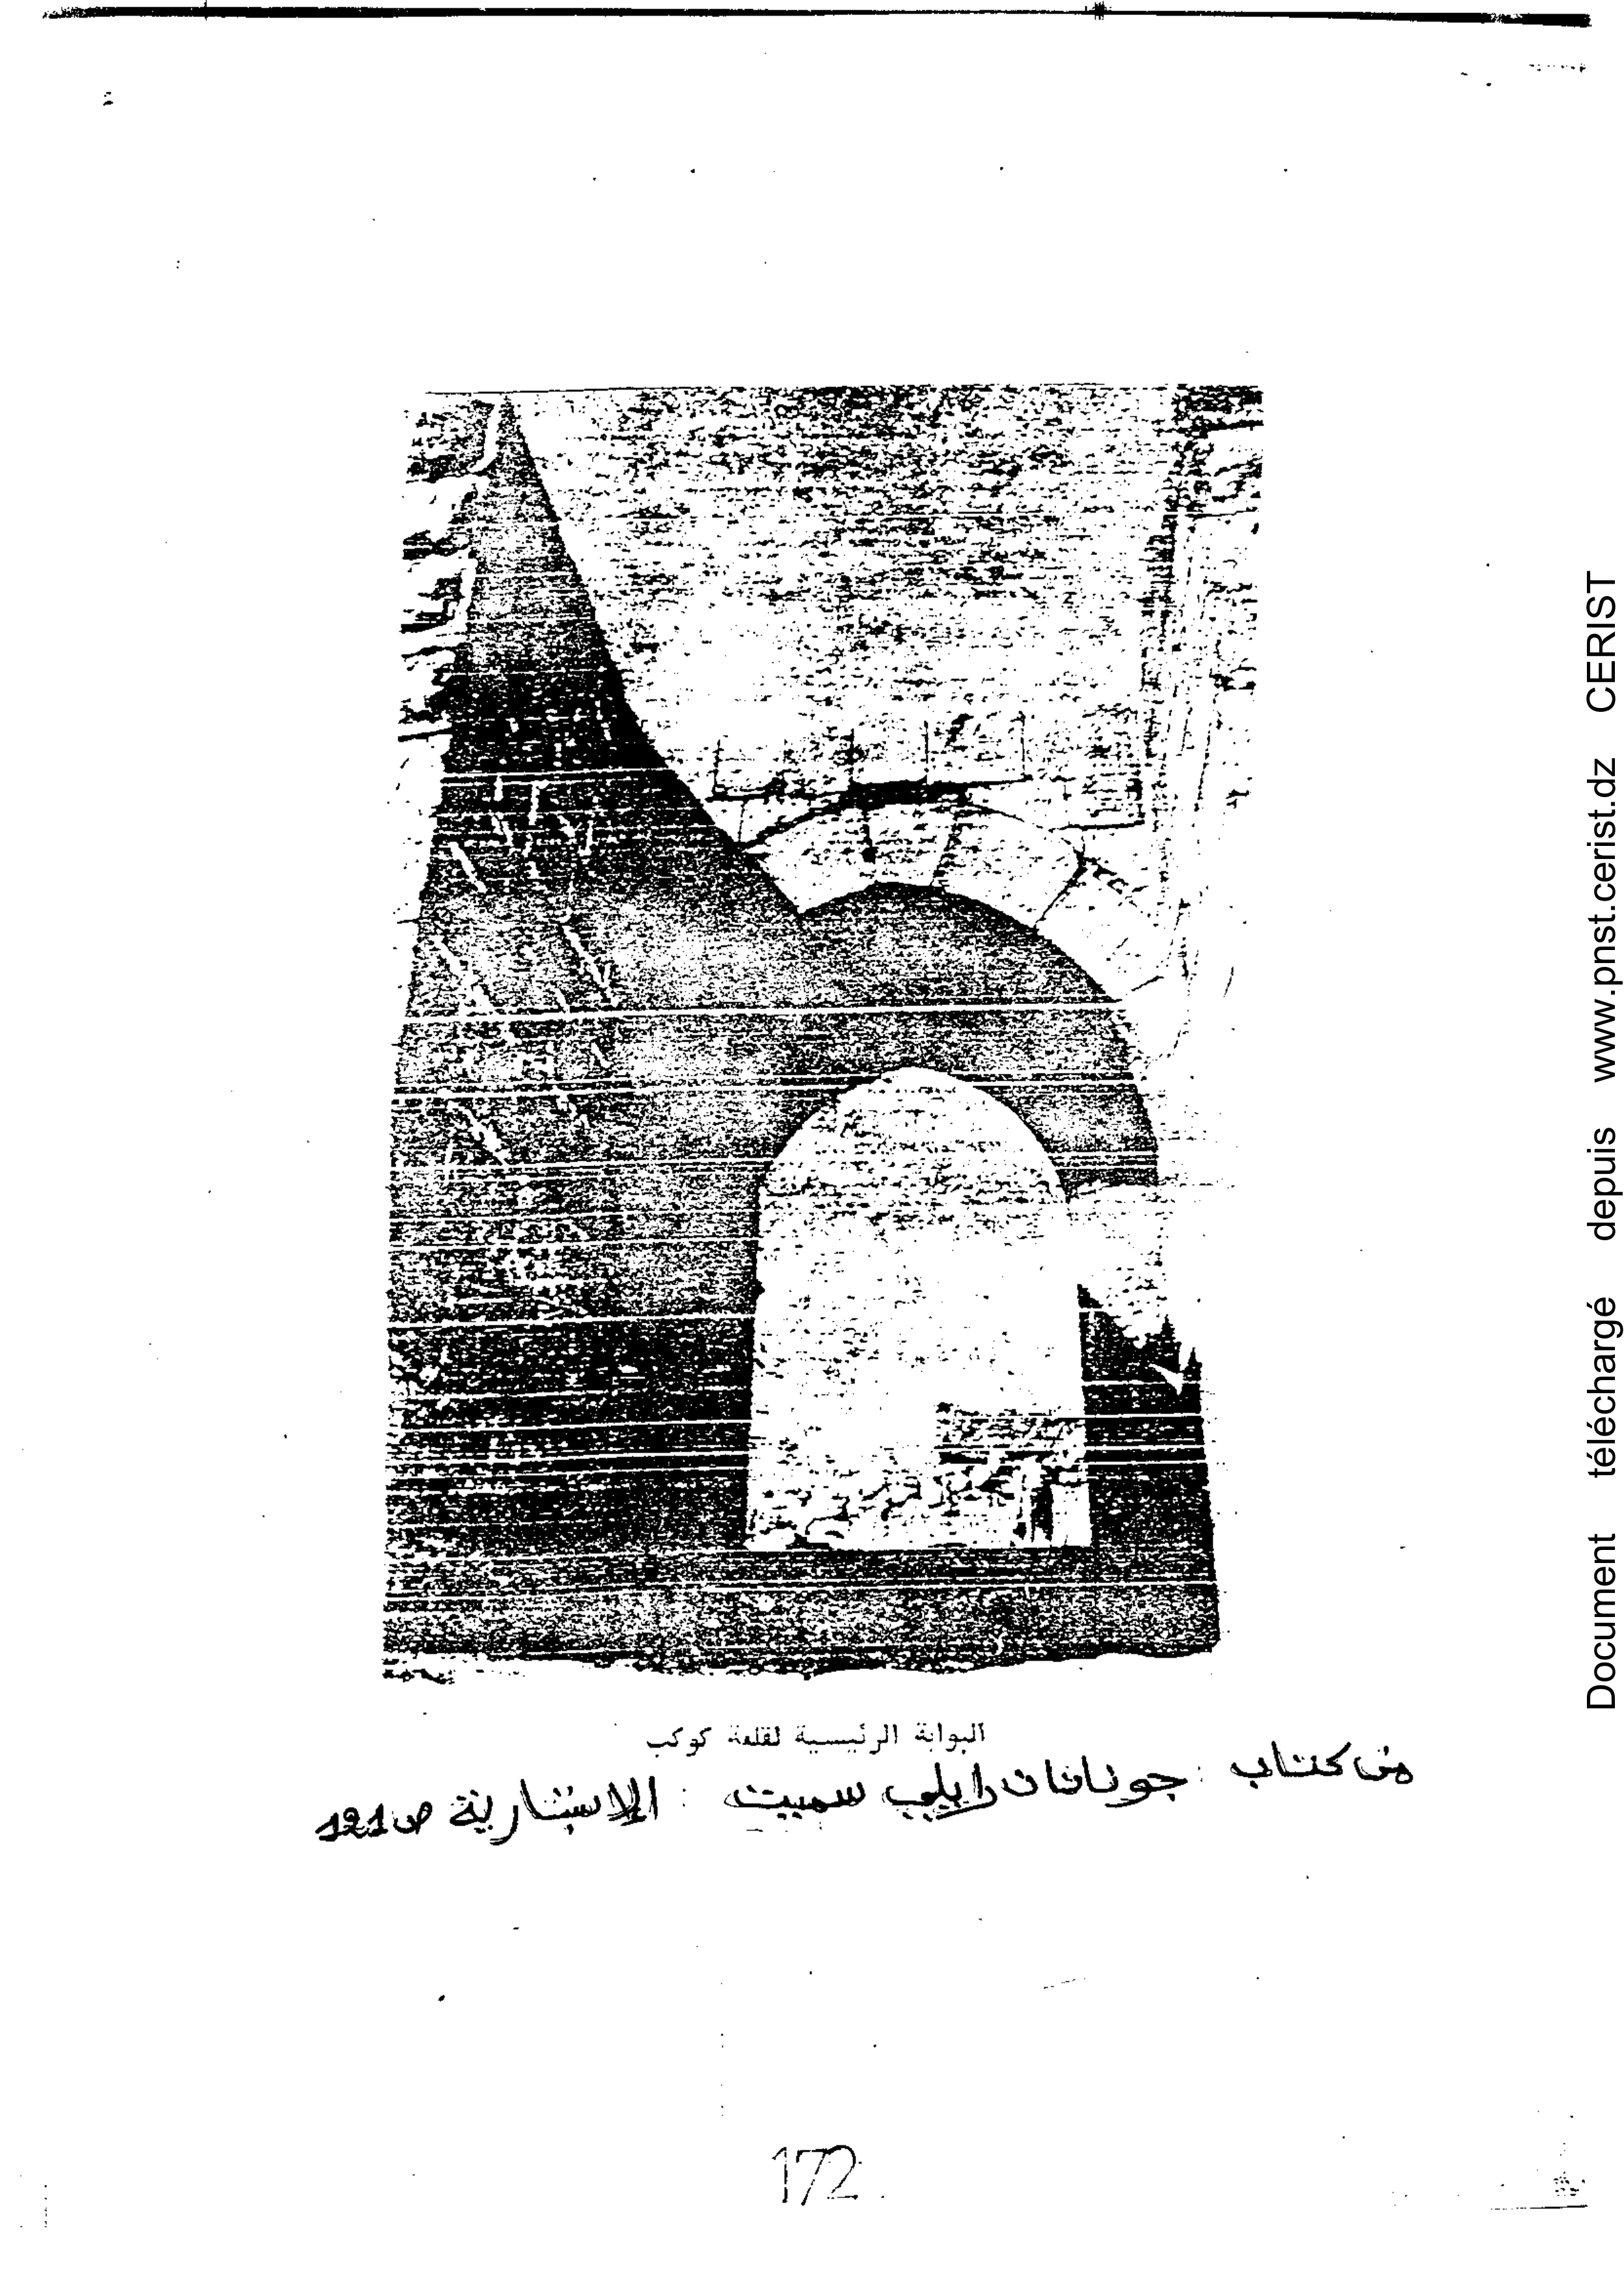 البوابة الرئيسية لقلعة كوكب
من كتاب : جوناثان رايلي سميث : الإسبتارية ص 121
172
Document téléchargé depuis www.pnst.cerist.dz CERIST